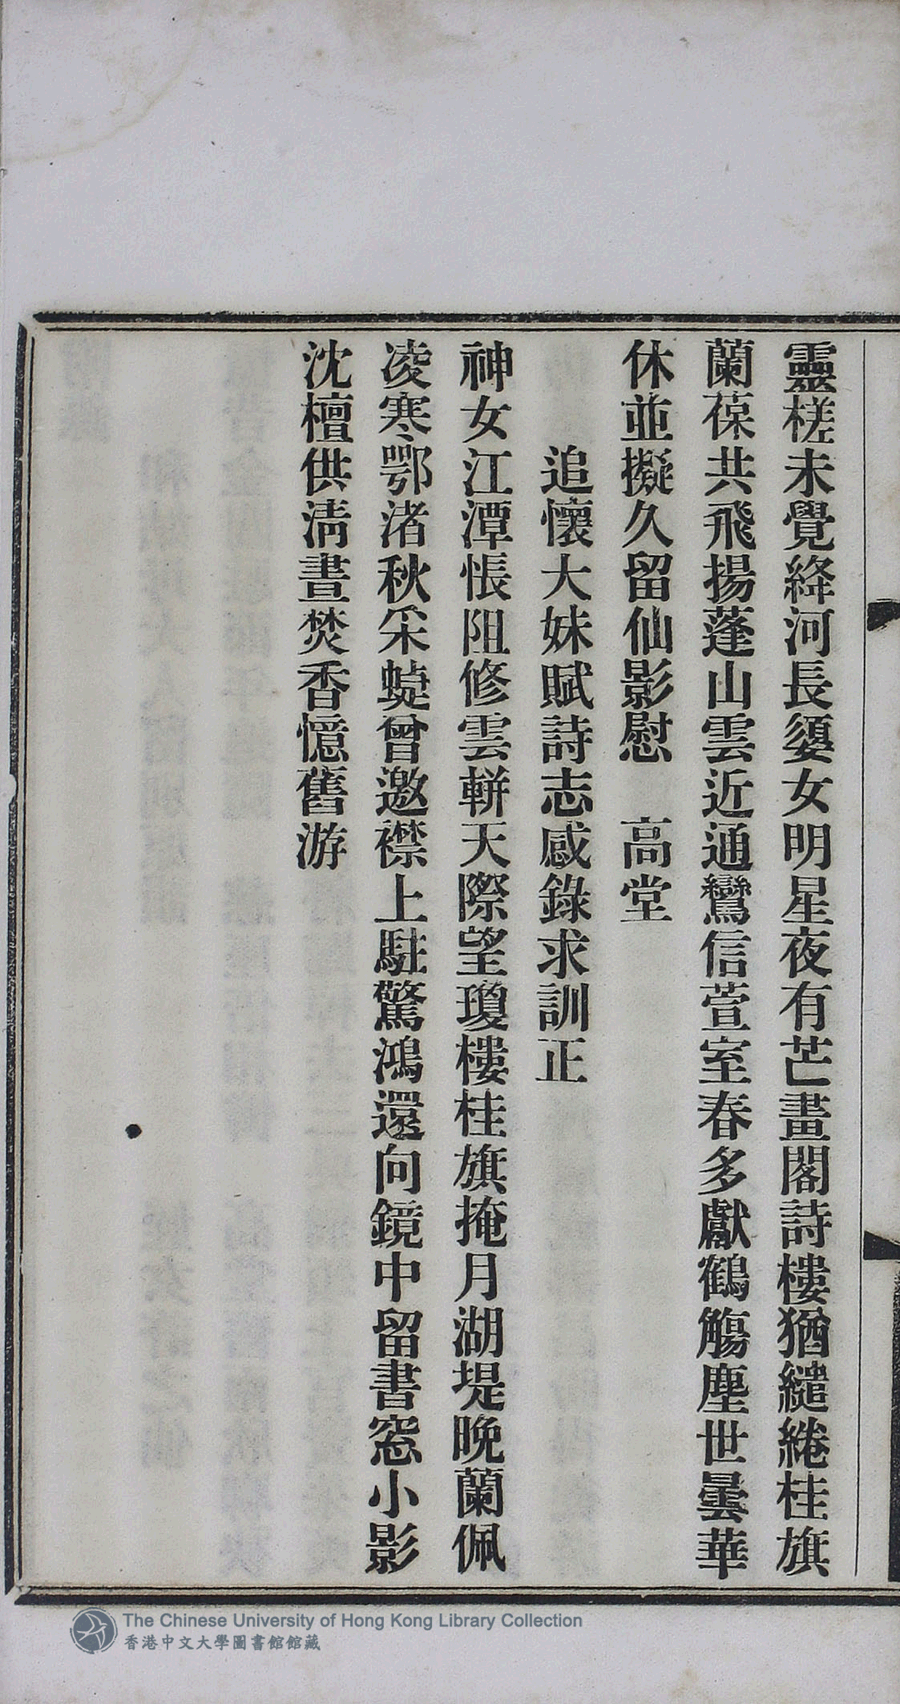 靈槎未覺絳河長媭女明星夜有芒畫閣詩樓猶繾綣桂旗
蘭葆共飛揚蓬山雲近通鸞信萱室春多獻鶴觴塵世曇華
休並擬久留仙影慰　高堂
追懷大妹賦詩志感錄求訓正
神女江潭悵阻修雲軿天際望瓊樓桂旗掩月湖堤晚蘭佩
凌寒鄂渚秋采蜨曾邀襟上駐驚鴻還向鏡中留書窓小影
沈檀供淸晝焚香憶舊游
The Chinese University of Hong Kong Library Collection
香港中文大學圖書館館藏